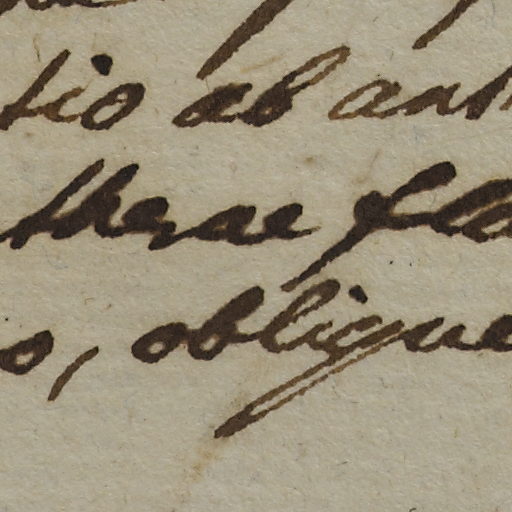 tio ab ant
therae fla
o, oblique